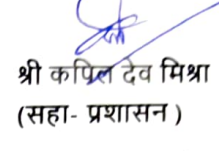 श्री कपिल देव मिश्रा
(सहा- प्रशासन )